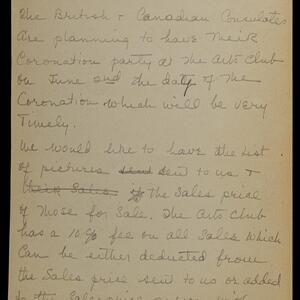 The British & Canadian Consulates
are planning to have their
Coronation party at the Arts Club
on June 2nd the day of the
Coronation which will be very
timely.
We would like to have the list
of pictures sent sent to us &
their Sales if the sales price
of those for sale. The Arts Club
has a 10% fee on all sales which
can be either deducted from
the sales price sent to us or added
to the sales price